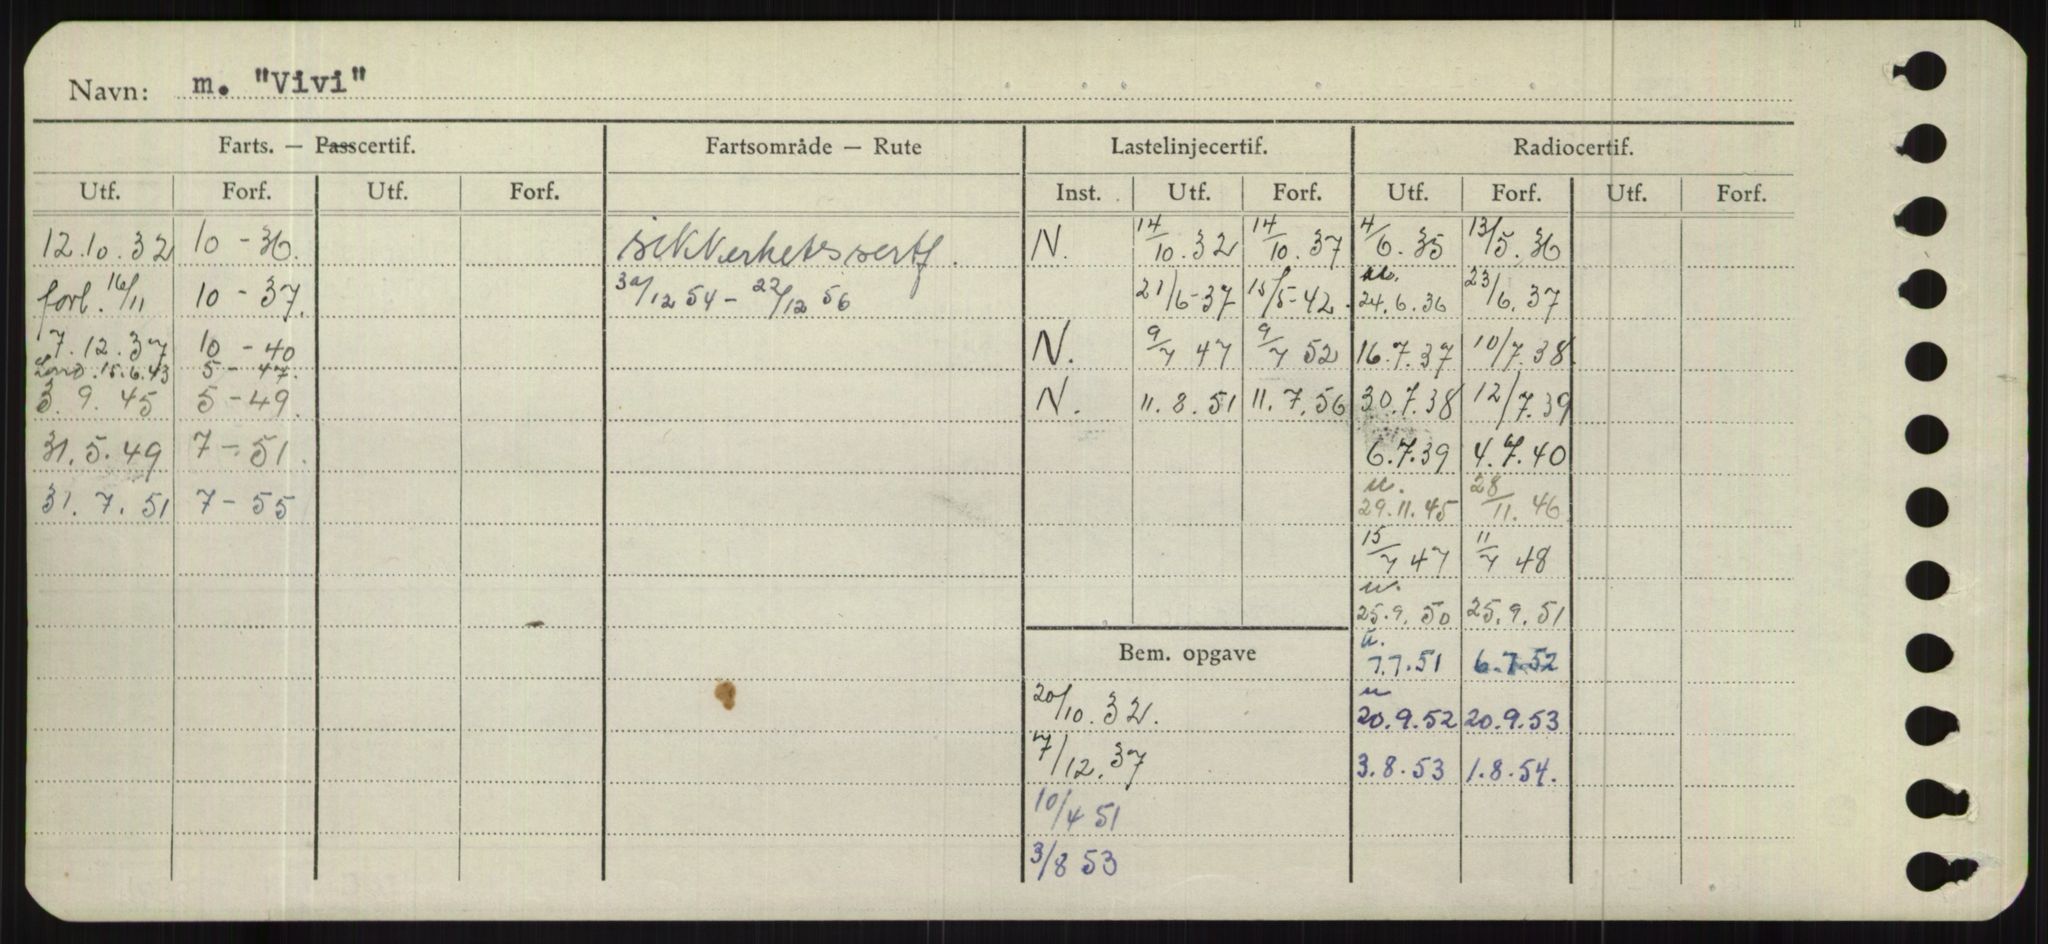 Navn: m. "Vivi"
Farts. — Passcertif. Fartsområde — Rute Lastelinjecertif. Radiocertif.
Utf. Forf. Utf. Forf. Inst. Utf. Forf. Utf. Forf. Utf. Forf.
12.10.32 10 - 36. sikkerhetssertf. N. 14/10.32 14/10.37 4/6.35 13/5.36
forl. 16/11 10 - 37. 30/12 54 - 22/12 56 21/6-37 15/5-42. 24.6.36 23/6.37
7.12.37 10 - 40 N. 9/7 47 9/7 52 16.7.37 10/7.38
Lond. 15.6.43 5 - 47.
3.9.45 5 - 49. N. 11.8.51 11.7.56 30.7.38 12/7.39
31.5.49 7 - 51. 6.7.39 4.7.40
31.7.51 7 - 55 u. 29.11.45 28/11.46
15/7 47 11/7 48
u. 25.9.50 25.9.51
Bem. opgave u. 7.7.51 6.7.52
20/10.32. u 20.9.52 20.9.53
7/12.37 3.8.53 1.8.54.
10/4 51
3/8 53